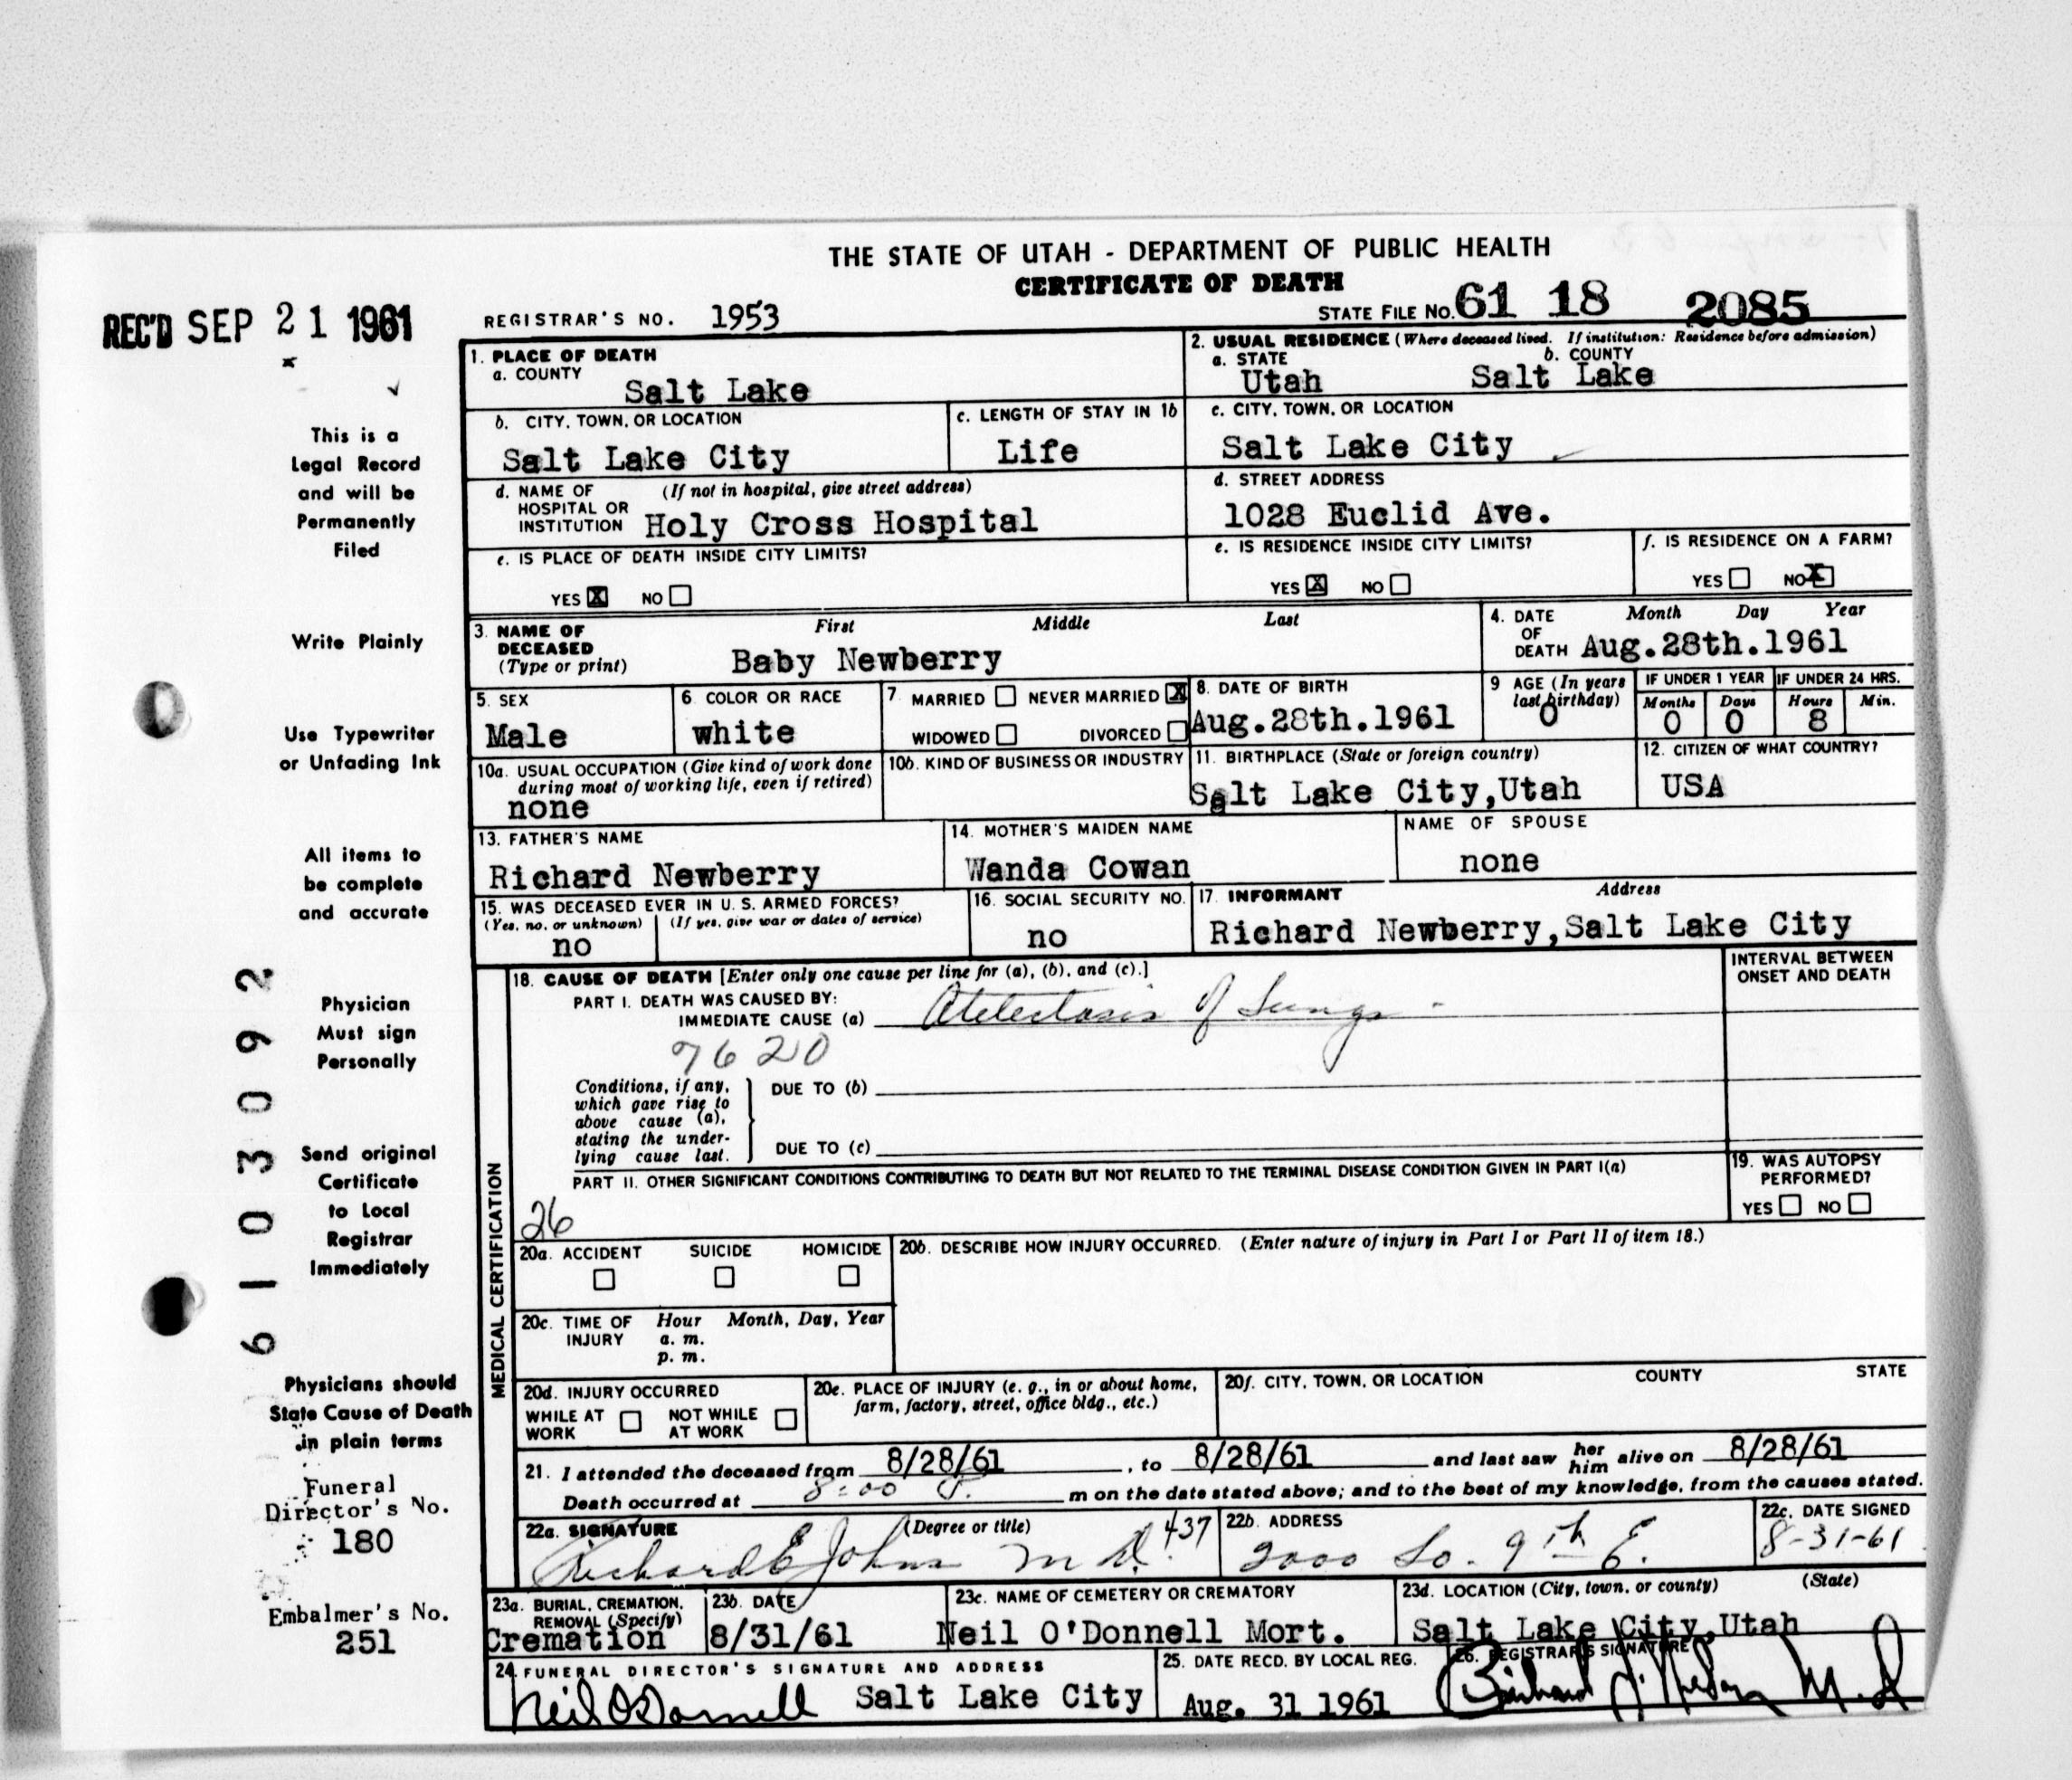 THE STATE OF UTAH - DEPARTMENT OF PUBLIC HEALTH
CERTIFICATE OF DEATH
REC'D SEP 21 1961
REGISTRAR'S NO. 1953
STATE FILE NO. 61 18 2085
1. PLACE OF DEATH
a. COUNTY
Salt Lake
2. USUAL RESIDENCE (Where deceased lived. If institution: Residence before admission)
a. STATE b. COUNTY
Utah Salt Lake
b. CITY, TOWN, OR LOCATION
Salt Lake City
c. LENGTH OF STAY IN 1b
Life
c. CITY, TOWN, OR LOCATION
Salt Lake City
d. NAME OF HOSPITAL OR INSTITUTION (If not in hospital, give street address)
Holy Cross Hospital
d. STREET ADDRESS
1028 Euclid Ave.
e. IS PLACE OF DEATH INSIDE CITY LIMITS?
YES X NO
e. IS RESIDENCE INSIDE CITY LIMITS?
YES X NO
f. IS RESIDENCE ON A FARM?
YES NO X
3. NAME OF DECEASED (Type or print)
First Middle Last
Baby Newberry
4. DATE OF DEATH Month Day Year
Aug.28th.1961
5. SEX
Male
6. COLOR OR RACE
white
7. MARRIED NEVER MARRIED X
WIDOWED DIVORCED
8. DATE OF BIRTH
Aug.28th.1961
9 AGE (In years last birthday)
0
IF UNDER 1 YEAR
Months Days
0 0
IF UNDER 24 HRS.
Hours Min.
8
10a. USUAL OCCUPATION (Give kind of work done during most of working life, even if retired)
none
10b. KIND OF BUSINESS OR INDUSTRY
11. BIRTHPLACE (State or foreign country)
Salt Lake City,Utah
12. CITIZEN OF WHAT COUNTRY?
USA
13. FATHER'S NAME
Richard Newberry
14. MOTHER'S MAIDEN NAME
Wanda Cowan
NAME OF SPOUSE
none
15. WAS DECEASED EVER IN U. S. ARMED FORCES?
(Yes, no, or unknown) (If yes, give war or dates of service)
no
16. SOCIAL SECURITY NO.
no
17. INFORMANT Address
Richard Newberry,Salt Lake City
MEDICAL CERTIFICATION
18. CAUSE OF DEATH [Enter only one cause per line for (a), (b), and (c).]
PART I. DEATH WAS CAUSED BY:
IMMEDIATE CAUSE (a) Atelectasis of Lungs
7620
Conditions, if any, which gave rise to above cause (a), stating the underlying cause last.
DUE TO (b)
DUE TO (c)
INTERVAL BETWEEN ONSET AND DEATH
PART II. OTHER SIGNIFICANT CONDITIONS CONTRIBUTING TO DEATH BUT NOT RELATED TO THE TERMINAL DISEASE CONDITION GIVEN IN PART I(a)
26
19. WAS AUTOPSY PERFORMED?
YES NO
20a. ACCIDENT SUICIDE HOMICIDE
20b. DESCRIBE HOW INJURY OCCURRED. (Enter nature of injury in Part I or Part II of item 18.)
20c. TIME OF INJURY Hour Month, Day, Year
a. m.
p. m.
20d. INJURY OCCURRED
WHILE AT WORK NOT WHILE AT WORK
20e. PLACE OF INJURY (e. g., in or about home, farm, factory, street, office bldg., etc.)
20f. CITY, TOWN, OR LOCATION COUNTY STATE
21. I attended the deceased from 8/28/61, to 8/28/61 and last saw her him alive on 8/28/61
Death occurred at 8:00 P. m on the date stated above; and to the best of my knowledge, from the causes stated.
22a. SIGNATURE (Degree or title)
Richard E Johns M D. 437
22b. ADDRESS
2000 So. 9th E.
22c. DATE SIGNED
8-31-61
23a. BURIAL, CREMATION, REMOVAL (Specify)
Cremation
23b. DATE
8/31/61
23c. NAME OF CEMETERY OR CREMATORY
Neil O'Donnell Mort.
23d. LOCATION (City, town, or county) (State)
Salt Lake City,Utah
24. FUNERAL DIRECTOR'S SIGNATURE AND ADDRESS
Neil O'Donnell Salt Lake City
25. DATE RECD. BY LOCAL REG.
Aug. 31 1961
26. REGISTRAR'S SIGNATURE
M.D
This is a
Legal Record
and will be
Permanently
Filed
Write Plainly
Use Typewriter
or Unfading Ink
All items to
be complete
and accurate
Physician
Must sign
Personally
Send original
Certificate
to Local
Registrar
Immediately
Physicians should
State Cause of Death
in plain terms
Funeral
Director's No.
180
Embalmer's No.
251
6103092